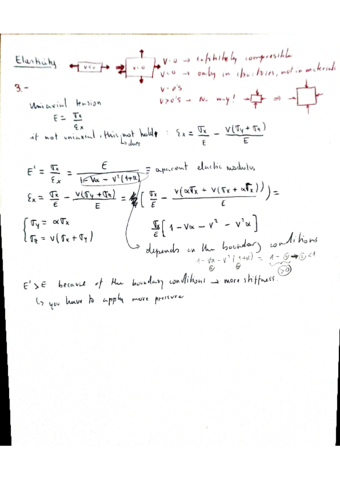 Elasticity
ν=0 → infinitely compressible
ν=0 → only in structures, not in materials
ν=0's
ν>0's → No way!
3.-
Uniaxial tension
E = σx/εx
if not uniaxial, this not hold: εx = σx/E - ν(σy+σz)/E
E' = σx/εx = E/(1-να-ν²(1+α)) = apparent elastic modulus
εx = σx/E - ν(σy+σz)/E = [σx/E - ν(ασx+ν(σx+ασx))/E] =
{σy = ασx
σz = ν(σx+σy)
σx/E [1-να-ν²-ν²α]
depends on the boundary conditions
1-να-ν²(1+α) =
E'>E because of the boundary conditions → more stiffness.
↳ you have to apply more pressure